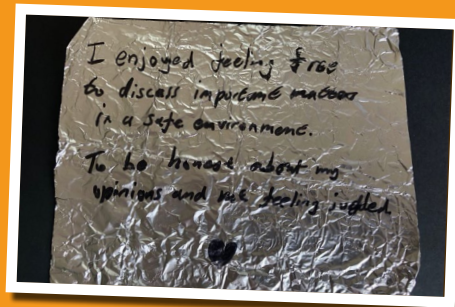 I enjoyed feeling free
to discuss important matters
in a safe environment.
To be honest about my
opinions and not feeling judged.